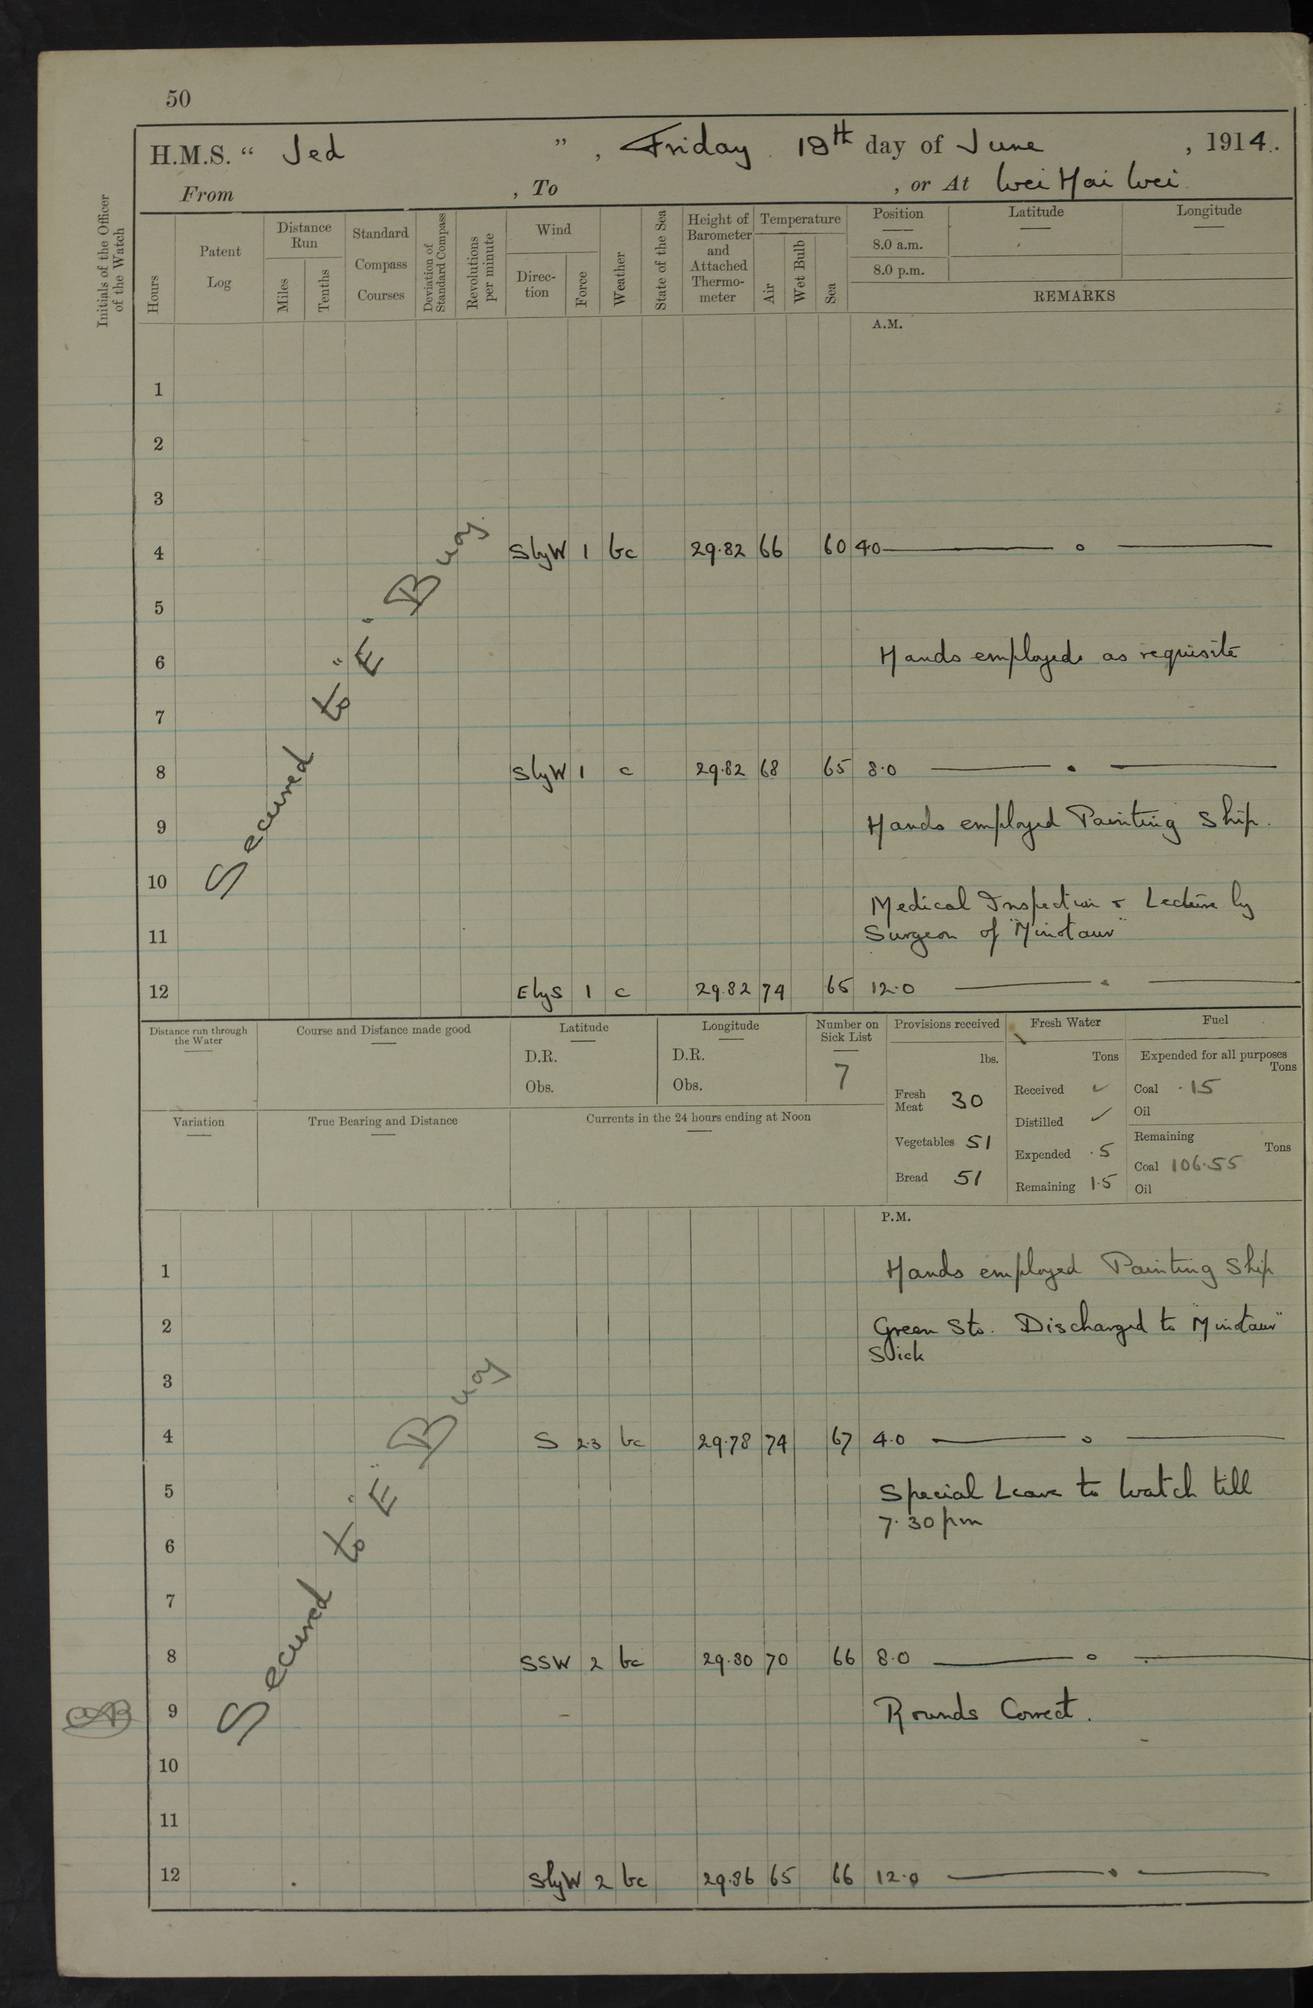 50
H.M.S. “ Jed ” , Friday 19th day of June , 1914.
From , To , or At Wei Hai Wei
Initials of the Officer of the Watch
Hours
Patent Log
Distance Run
Miles
Tenths
Standard Compass Courses
Deviation of Standard Compass
Revolutions per minute
Wind
Direc-tion
Force
Weather
State of the Sea
Height of Barometer and Attached Thermo-meter
Temperature
Air
Wet Bulb
Sea
Position Latitude Longitude
8.0 a.m.
8.0 p.m.
REMARKS
A.M.
1
2
3
4 SbyW 1 bc 29.82 66 60 4.0
5
6 Hands employed as requisite
7
8 SbyW 1 c 29.82 68 65 8.0
9 Hands employed Painting Ship.
10
Medical Inspection & Lecture by
11 Surgeon of "Minotaur"
12 EbyS 1 c 29.82 74 65 12.0
Secured to "E" Buoy.
Distance run through the Water
Course and Distance made good
Latitude
D.R.
Obs.
Longitude
D.R.
Obs.
Number on Sick List
7
Provisions received
lbs.
Fresh Meat 30
Vegetables 51
Bread 51
Fresh Water
Tons
Received ✓
Distilled ✓
Expended .5
Remaining 1.5
Fuel
Expended for all purposes
Tons
Coal .15
Oil
Remaining
Tons
Coal 106.55
Oil
Variation
True Bearing and Distance
Currents in the 24 hours ending at Noon
P.M.
1 Hands employed Painting Ship
2 Green Sto. Discharged to "Minotaur"
Sick
3
4 S 2.3 bc 29.78 74 67 4.0
5 Special Leave to Watch till
7.30 pm
6
7
8 SSW 2 bc 29.80 70 66 8.0
9 Rounds Correct.
10
11
12 SbyW 2 bc 29.86 65 66 12.0
Secured to "E" Buoy